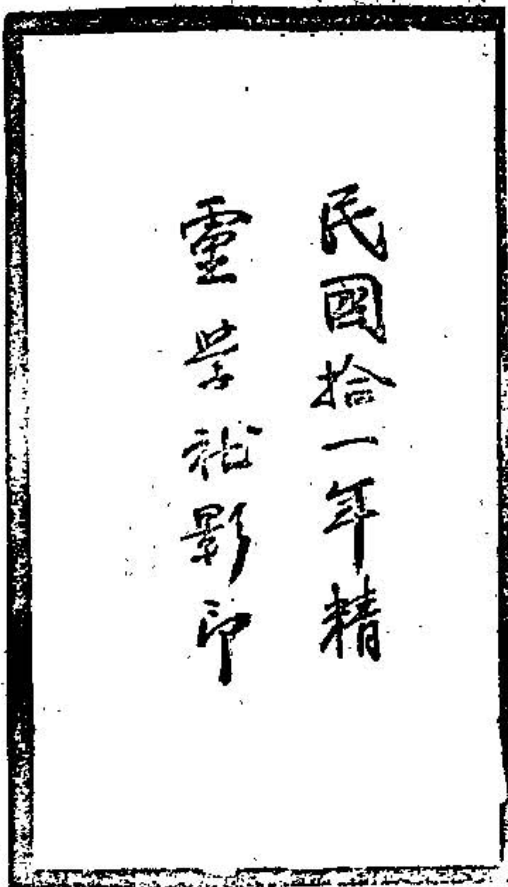 民國拾一年精
靈学社影印